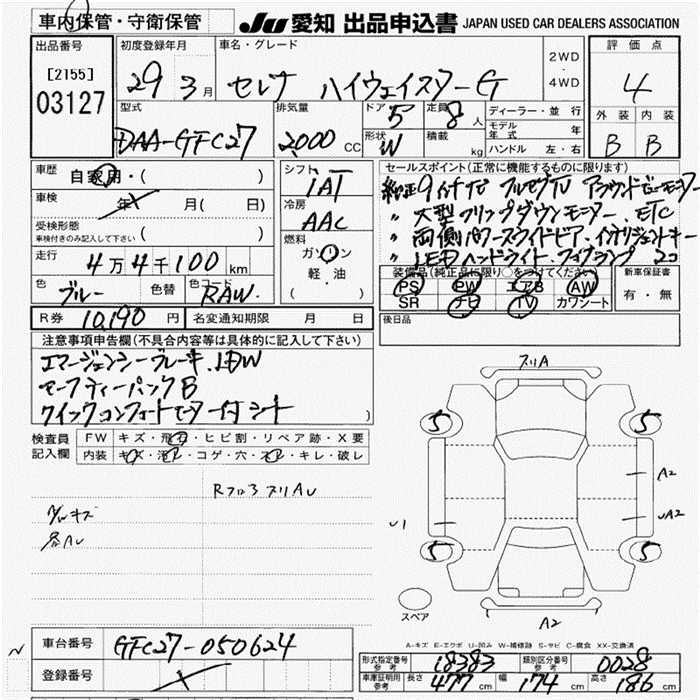 車内保管・守衛保管
JU 愛知 出品申込書 JAPAN USED CAR DEALERS ASSOCIATION
出品番号
[2155]
03127
初度登録年月
29 3月
車名・グレード
セレナ ハイウェイスターG
2WD
・
4WD
評価点
4
外装 内装
B B
型式
DAA-GFC27
排気量
2000 CC
ドア 5
定員 8人
形状 W
積載 kg
ディーラー・並行
モデル年式 年
ハンドル 左・右
車歴
自家用・( )
車検
年 月( 日)
受検形態
車検付きのみ記入して下さい ( )
走行
4万4千100km
色 ブルー
色替
色コード RAW
シフト
IAT
冷房
AAC
燃料
ガソリン
軽・油
( )
セールスポイント(正常に機能するものに限ります)
純正9インチナビ フルセグTV アラウンドビューモニター
〃 大型フリップダウンモニター ETC
〃 両側パワースライドドア インテリジェントキー
〃 LEDヘッドライト フォグランプ
装備品(純正品に限り○をつけてください)
PS PW エアB AW
SR ナビ TV カワシート
新車保証書
有・無
R券 10,190 円
名変通知期限 月 日
後日品
注意事項申告欄(不具合内容等は具体的に記入して下さい)
エマージェンシーブレーキ LDW
セーフティーパックB
クイックコンフォートヒーター付シート
検査員
記入欄
FW キズ・飛石・ヒビ割・リペア跡・X要
内装 キズ・汚レ・コゲ・穴・スレ・キレ・破レ
スリA
5 5
A2
U1
5 5
A2
スペア
A-キズ E-エクボ U-凹み W-補修跡 S-サビ C-腐食 XX-交換済
車台番号 GFC27-050624
登録番号
形式指定番号 参考 18383
類別区分番号 参考 0028
車庫証明用 参考 長さ 477 cm 幅 174 cm 高さ 186 cm